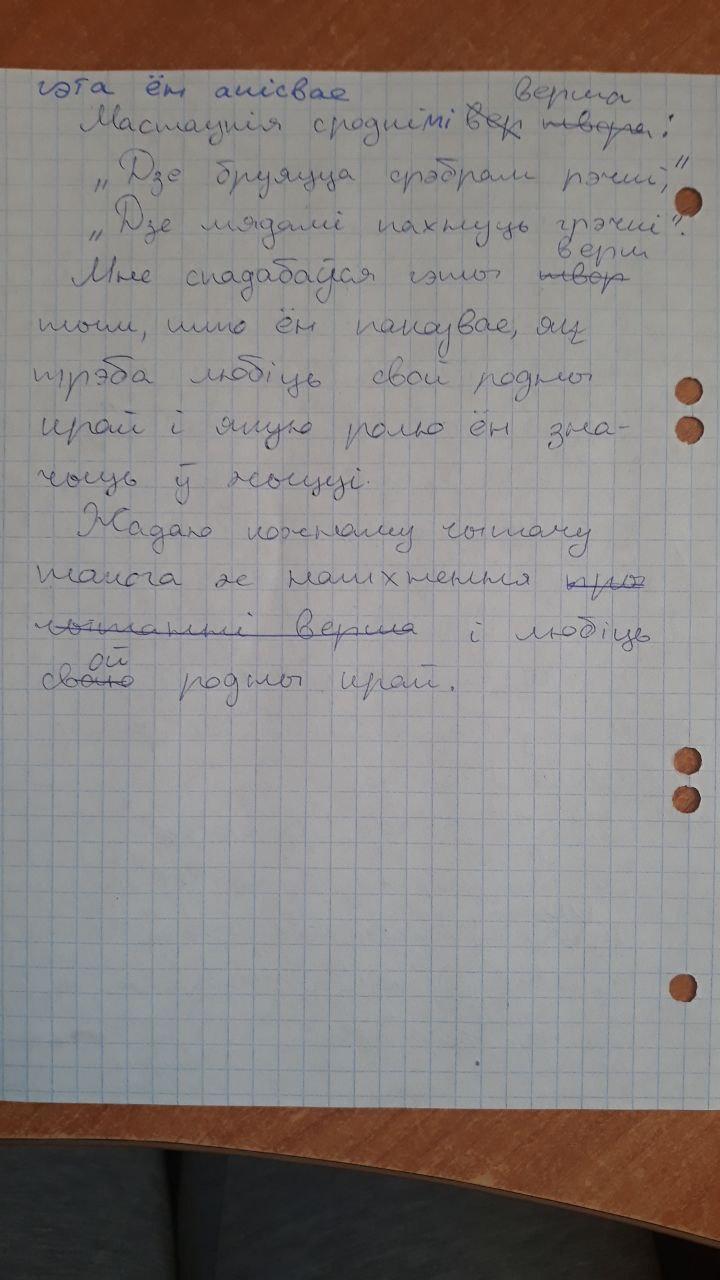 гэта ён апісвае
верша
Мастацкія сродкімі вер твора:
„Дзе бруяцца срэбрам рэчкі,"
„Дзе мядамі пахнуць грэчкі".
верш
Мне спадабаўся гэты твор
тым, што ён паказвае, як
трэба любіць свой родны
край і якую ролю ён зна-
чыць ў жыцці.
Жадаю кожнаму чытачу
такога ж натхнення пры
чытанні верша і любіць
ой
сваю родны край.